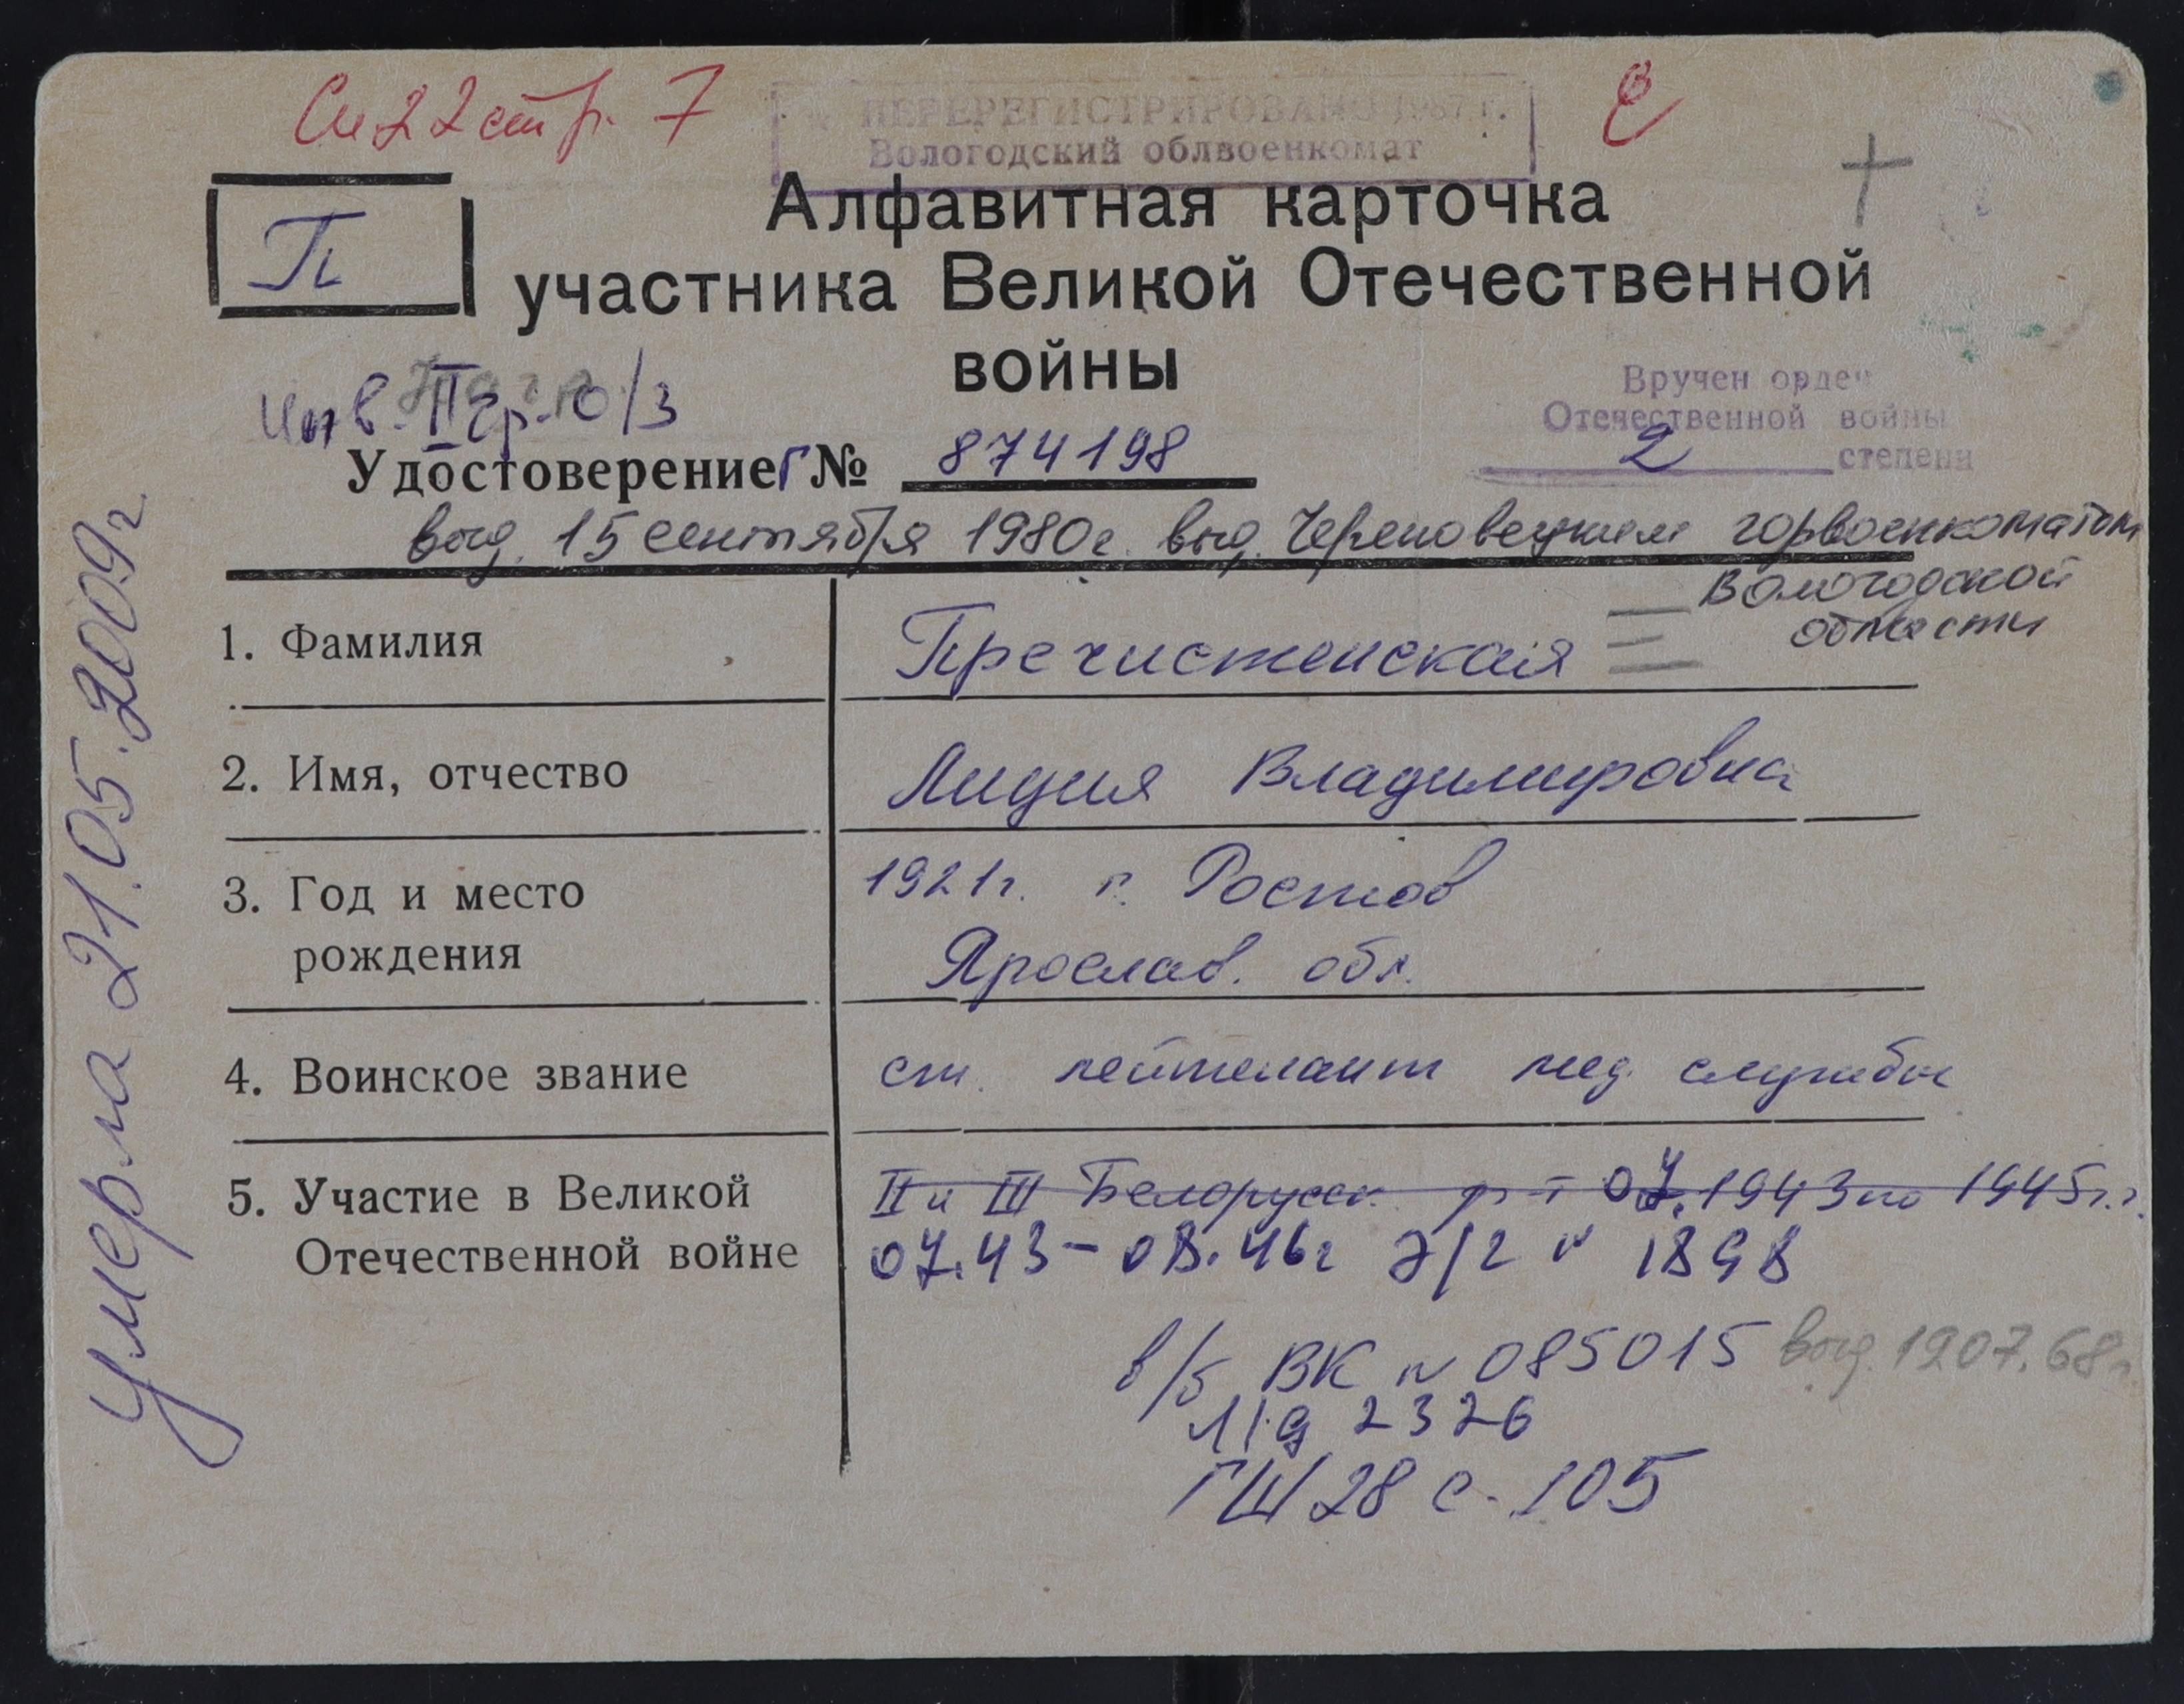 Сп 22 стр. 7
ПЕРЕРЕГИСТРИРОВАНО 1987 г.
Вологодский облвоенкомат
П
Алфавитная карточка
участника Великой Отечественной
войны
Инв. II гр. О/З
Вручен орден
Отечественной войны
2 степени
Удостоверение Г № 874198
выд. 15 сентября 1980г. выд. Череповецким горвоенкоматом
Вологодской
области
1. Фамилия Пречистенская
2. Имя, отчество Лидия Владимировна
3. Год и место рождения 1921г. г. Ростов
Ярослав. обл.
4. Воинское звание ст. лейтенант мед. службы
5. Участие в Великой Отечественной войне II и III Белорусск. ф-т 07.1943 по 1945г.г.
07.43-08.46г Э/г № 1898
в/б ВК № 085015 выд. 1907.68г.
л/д 2326
ГШ/28 с. 105
умерла 21.05.2009г